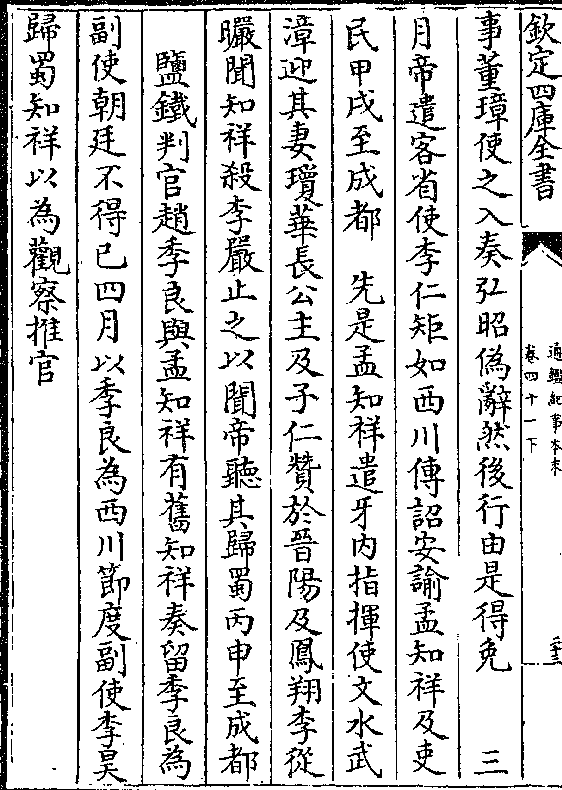 欽定四庫全書
通鑑紀事本末
卷四十一下
事董璋使之入奏弘昭偽辭然後行由是得免　三
月帝遣客省使李仁矩如西川傳詔安諭孟知祥及吏
民甲戌至成都　先是孟知祥遣牙內指揮使文水武
漳迎其妻瓊華長公主及子仁贊於晉陽及鳳翔李從
曮聞知祥殺李嚴止之以聞帝聽其歸蜀丙申至成都
鹽鐵判官趙季良與孟知祥有舊知祥奏留季良為
副使朝廷不得已四月以季良為西川節度副使李昊
歸蜀知祥以為觀察推官